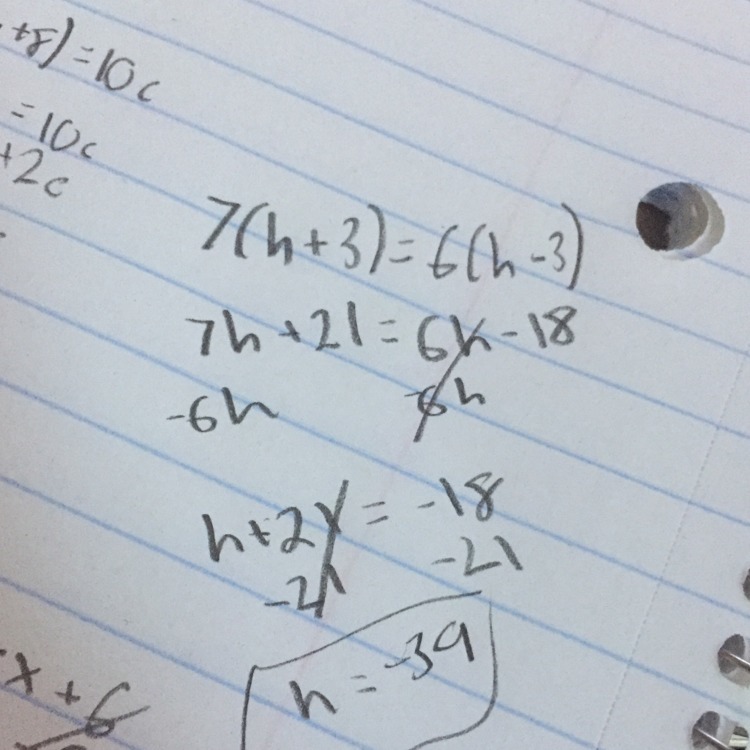 +8)=10c
=10c
+2c
7(h+3)=6(h-3)
7h+21=6h-18
-6h -6h
h+21=-18
-21 -21
h=-39
x+6